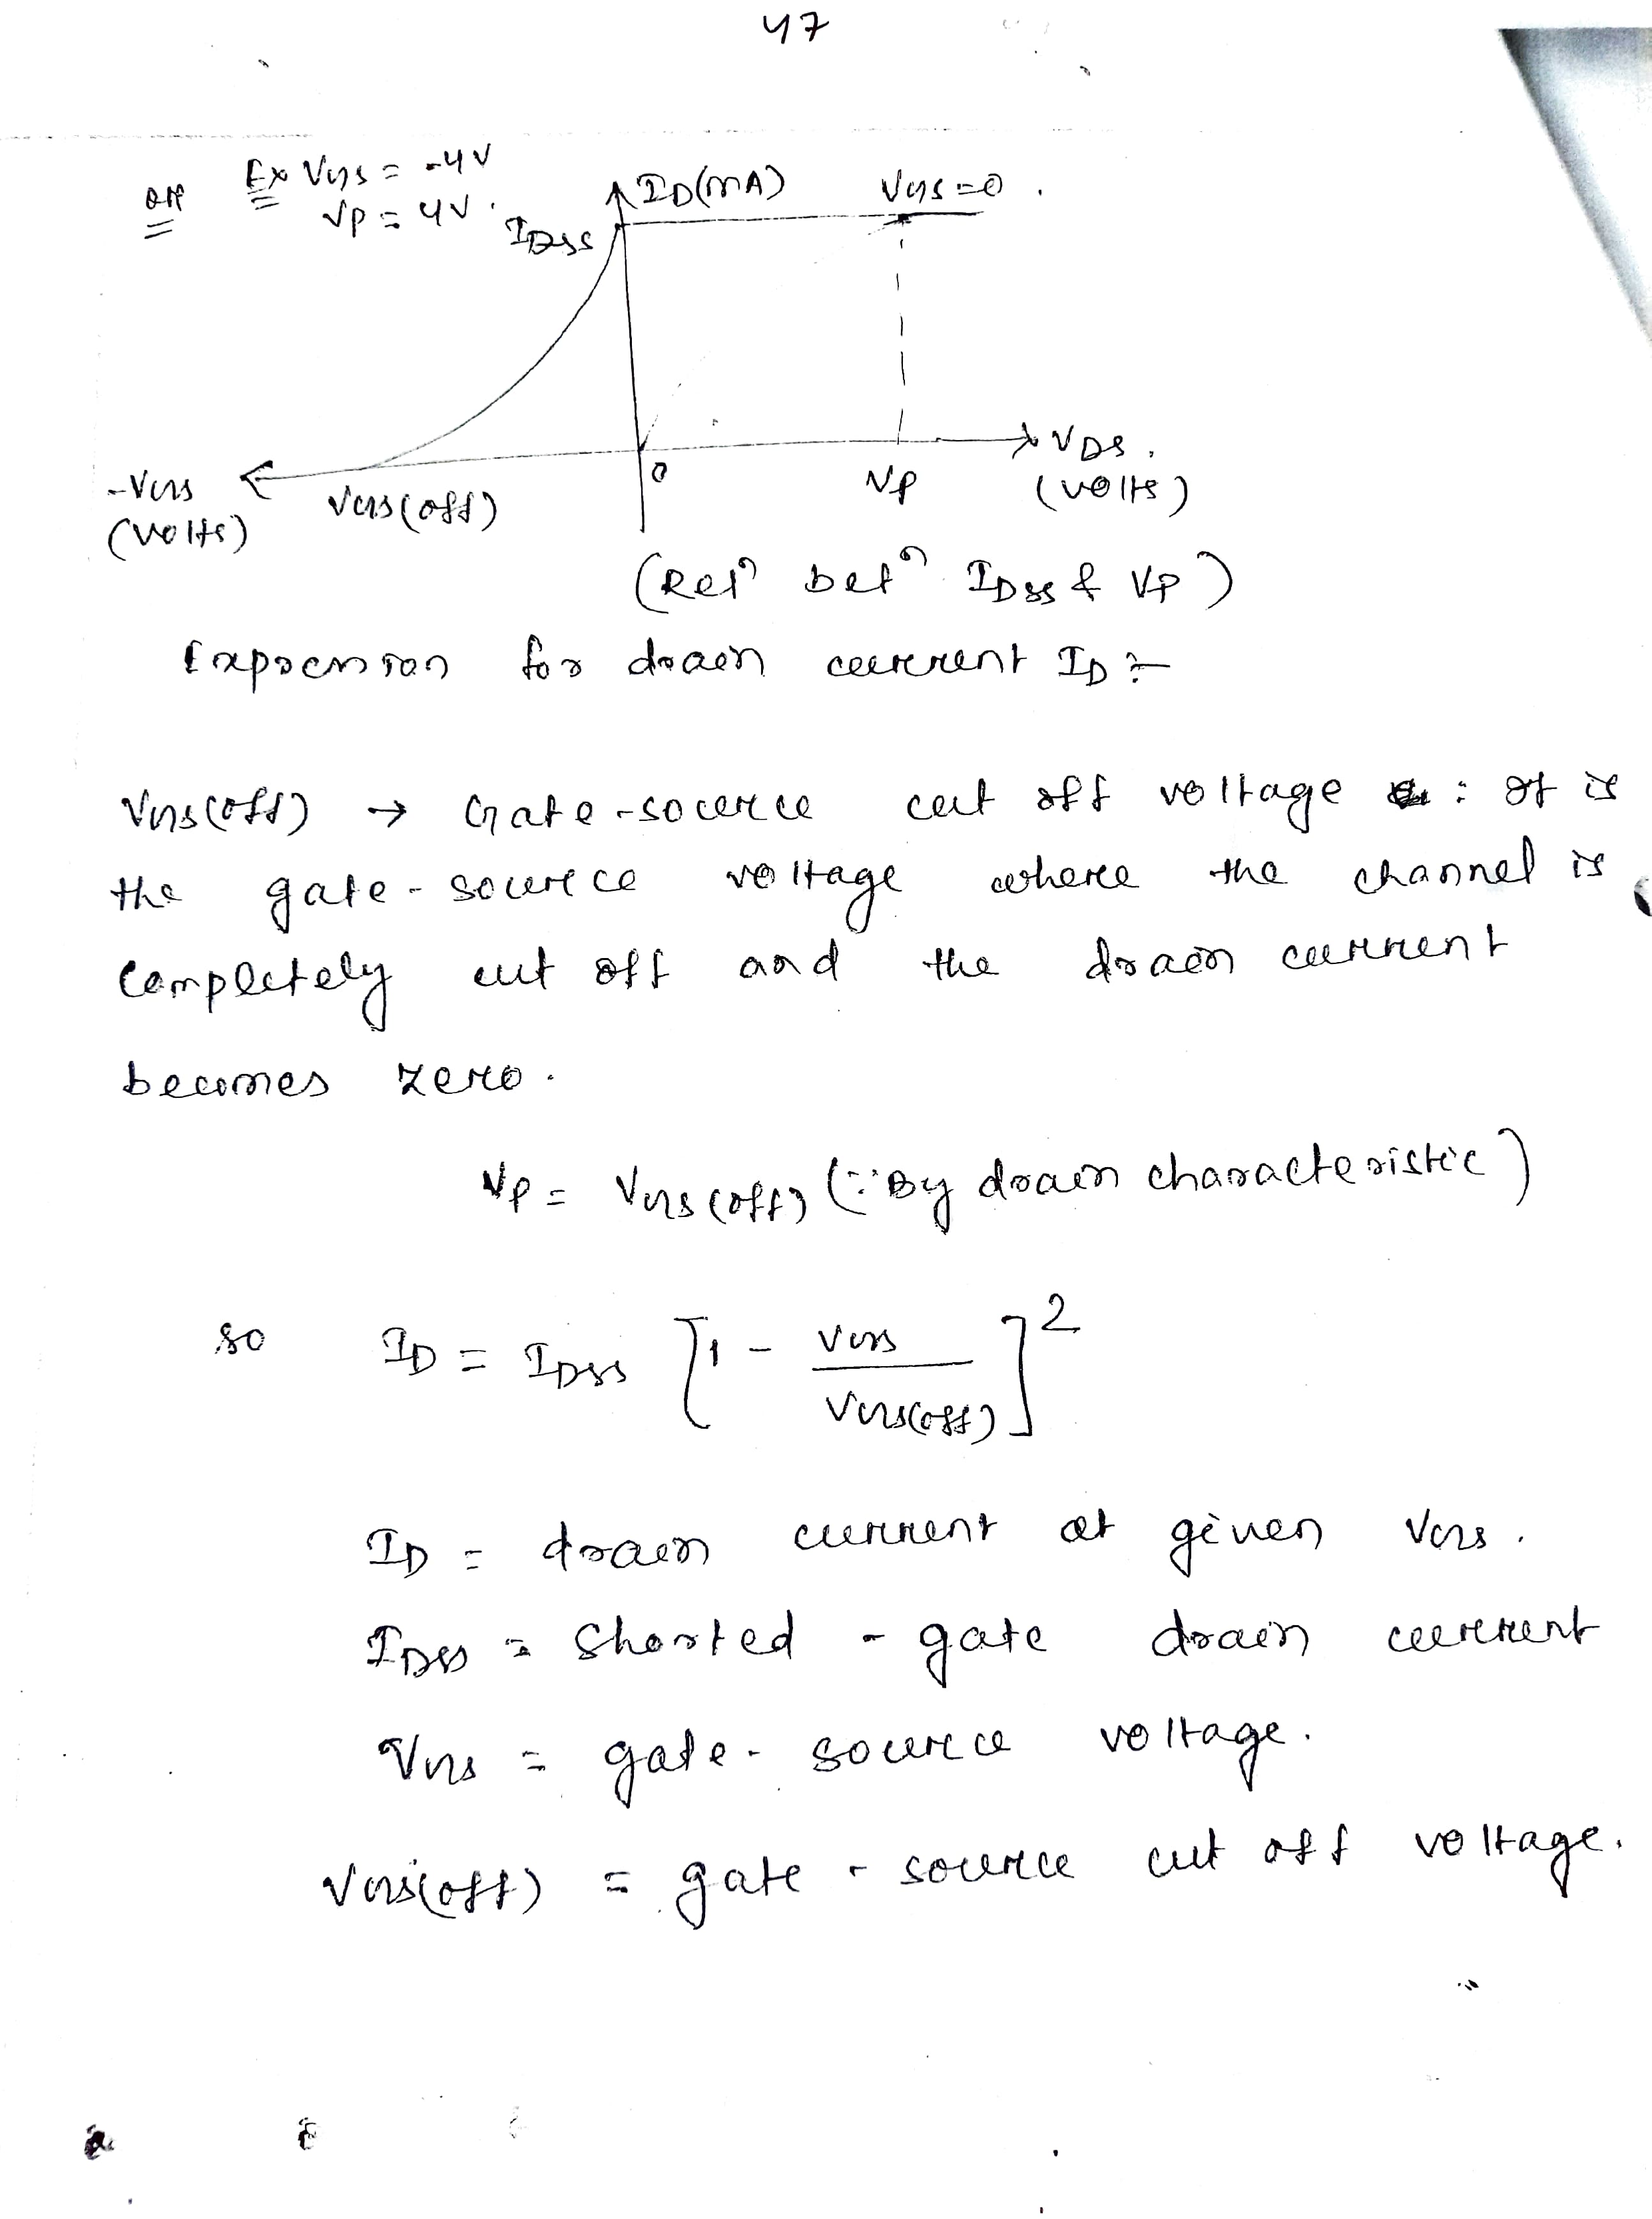 47
or Ex VGS = -4V
VP = 4V.
ID(mA)
VGS=0.
IDSS
VDS.
(volts)
-VGS
(volts)
VGS(off)
0
VP
(Relⁿ betⁿ IDSS & VP)
Expression for drain current ID :-
VGS(off) → Gate-source cut off voltage : It is
the gate-source voltage where the channel is
completely cut off and the drain current
becomes zero.
VP = VGS(off) (∵ By drain characteristic)
so ID = IDSS [1 - VGS / VGS(off)]²
ID = drain current at given VGS.
IDSS = Shorted - gate drain current
VGS = gate - source voltage.
VGS(off) = gate - source cut off voltage.